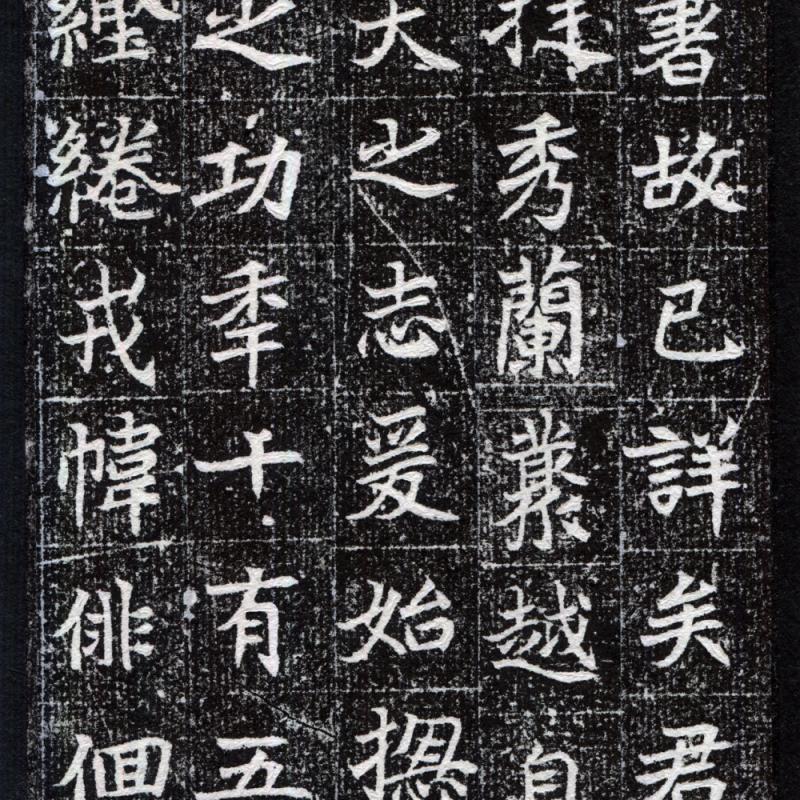 書故已詳矣君
挺秀蘭叢越自
大之志爰始摠
之功秊十有五
繾綣戎幃俳佪